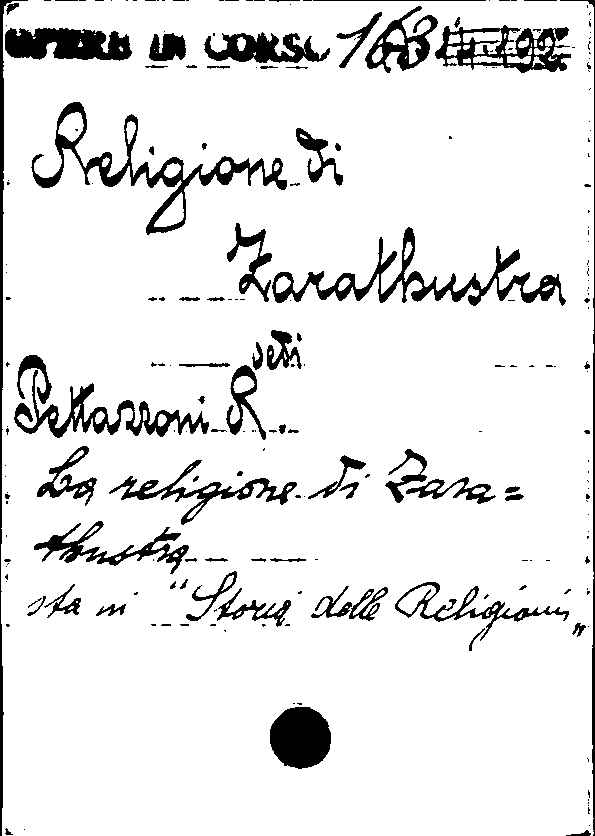 OPERE IN CORSO 163
Religione di
Zarathustra
vedi
Pettazzoni R.
La religione di Zara=
thustra
sta in "Storia delle Religioni"